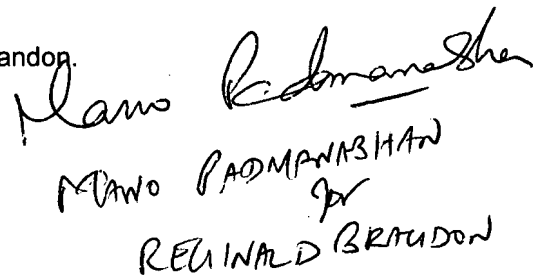 andon.
Mano Padmanabhan
MANO PADMANABHAN
for
REGINALD BRANDON